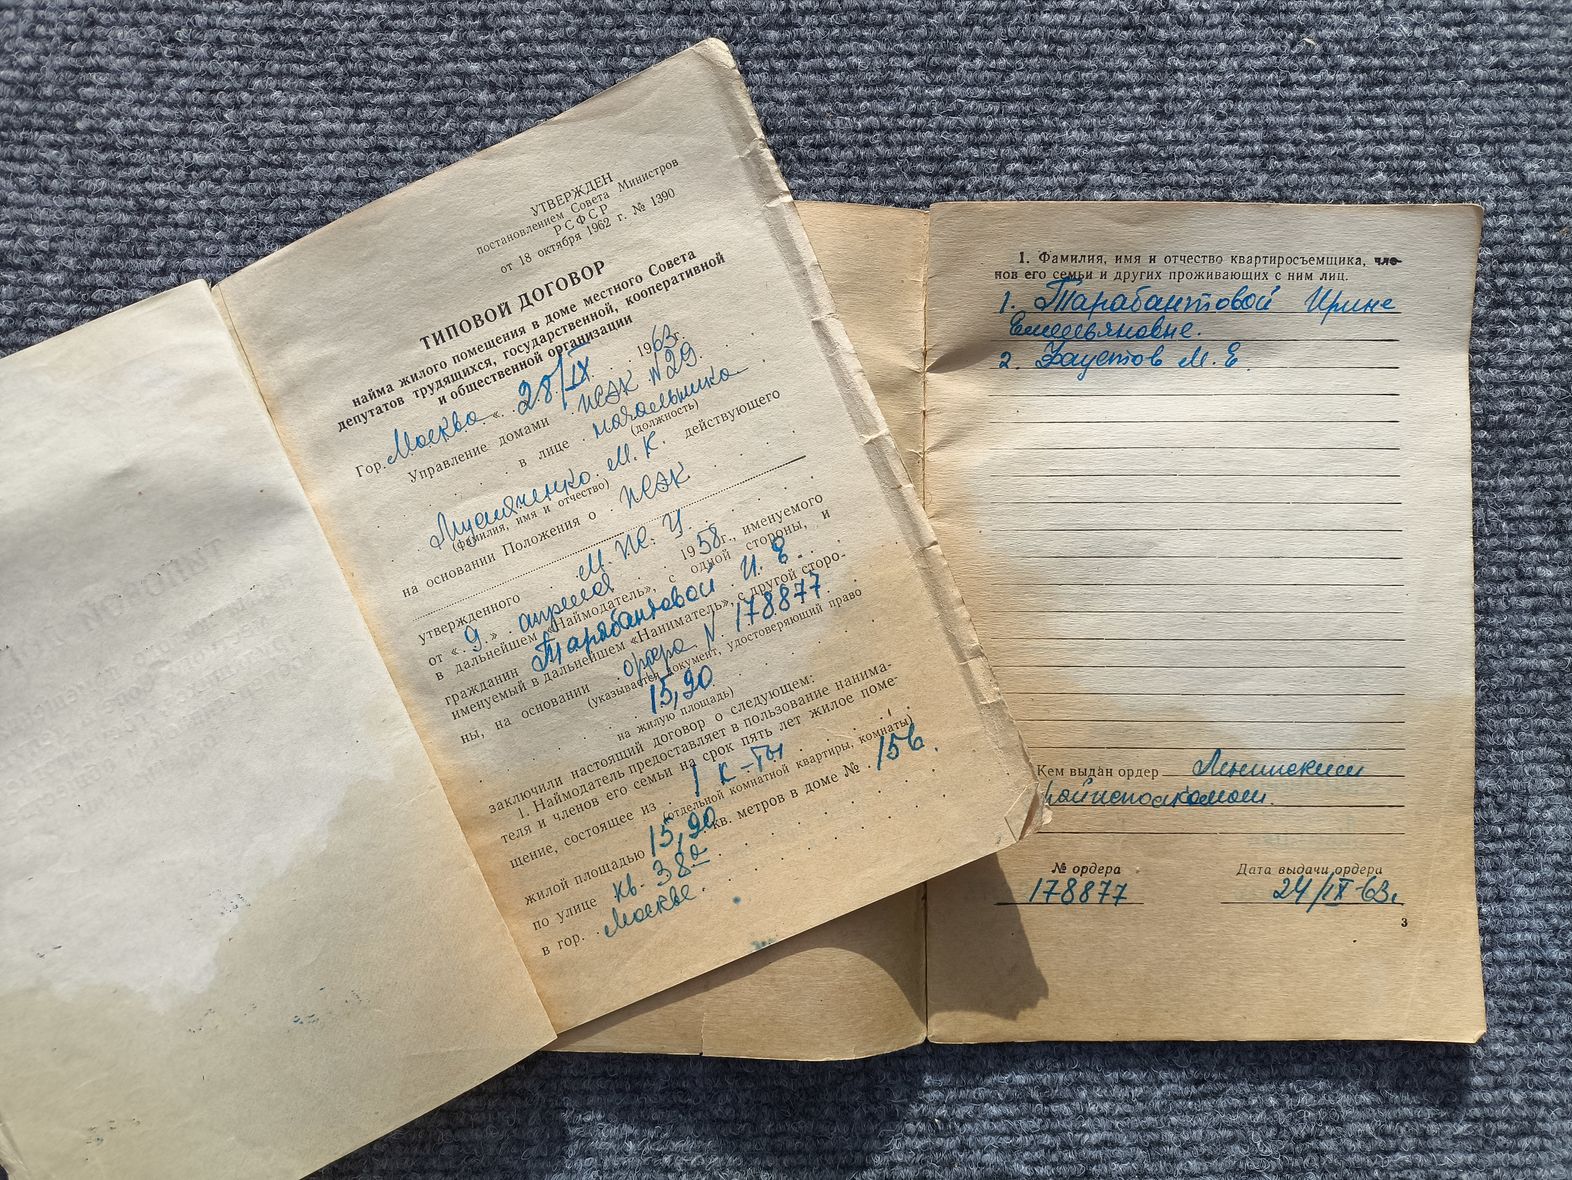 УТВЕРЖДЕН
постановлением Совета Министров
РСФСР
от 18 октября 1962 г. № 1390
ТИПОВОЙ ДОГОВОР
найма жилого помещения в доме местного Совета
депутатов трудящихся, государственной, кооперативной
и общественной организации
Гор. Москва «28/IX 1963г.
Управление домами ЖЭК №29.
в лице начальника
(должность)
М. К. действующего
(фамилия, имя и отчество)
на основании Положения о ЖЭК
утвержденного М. Ж. У.
от «9» апреля 1958г., именуемого
в дальнейшем «Наймодатель», с одной стороны, и
гражданин Тарабантовой И. Е.
именуемый в дальнейшем «Наниматель», с другой сторо-
ны, на основании ордера N. 178877.
(указывается документ, удостоверяющий право
15,90
на жилую площадь)
заключили настоящий договор о следующем:
1. Наймодатель предоставляет в пользование нанима-
теля и членов его семьи на срок пять лет жилое поме-
щение, состоящее из 1 к-ты
(отдельной комнатной квартиры, комнаты)
жилой площадью 15,90 кв. метров в доме № 15в.
по улице кв. 38а
в гор. Москве.
1. Фамилия, имя и отчество квартиросъемщика, чле-
нов его семьи и других проживающих с ним лиц.
1. Тарабантовой Ирине
Емельяновне.
2. Фаустов М. Е.
Кем выдан ордер Ленинским
райисполкомом.
№ ордера Дата выдачи ордера
178877 24/IX-63г.
3